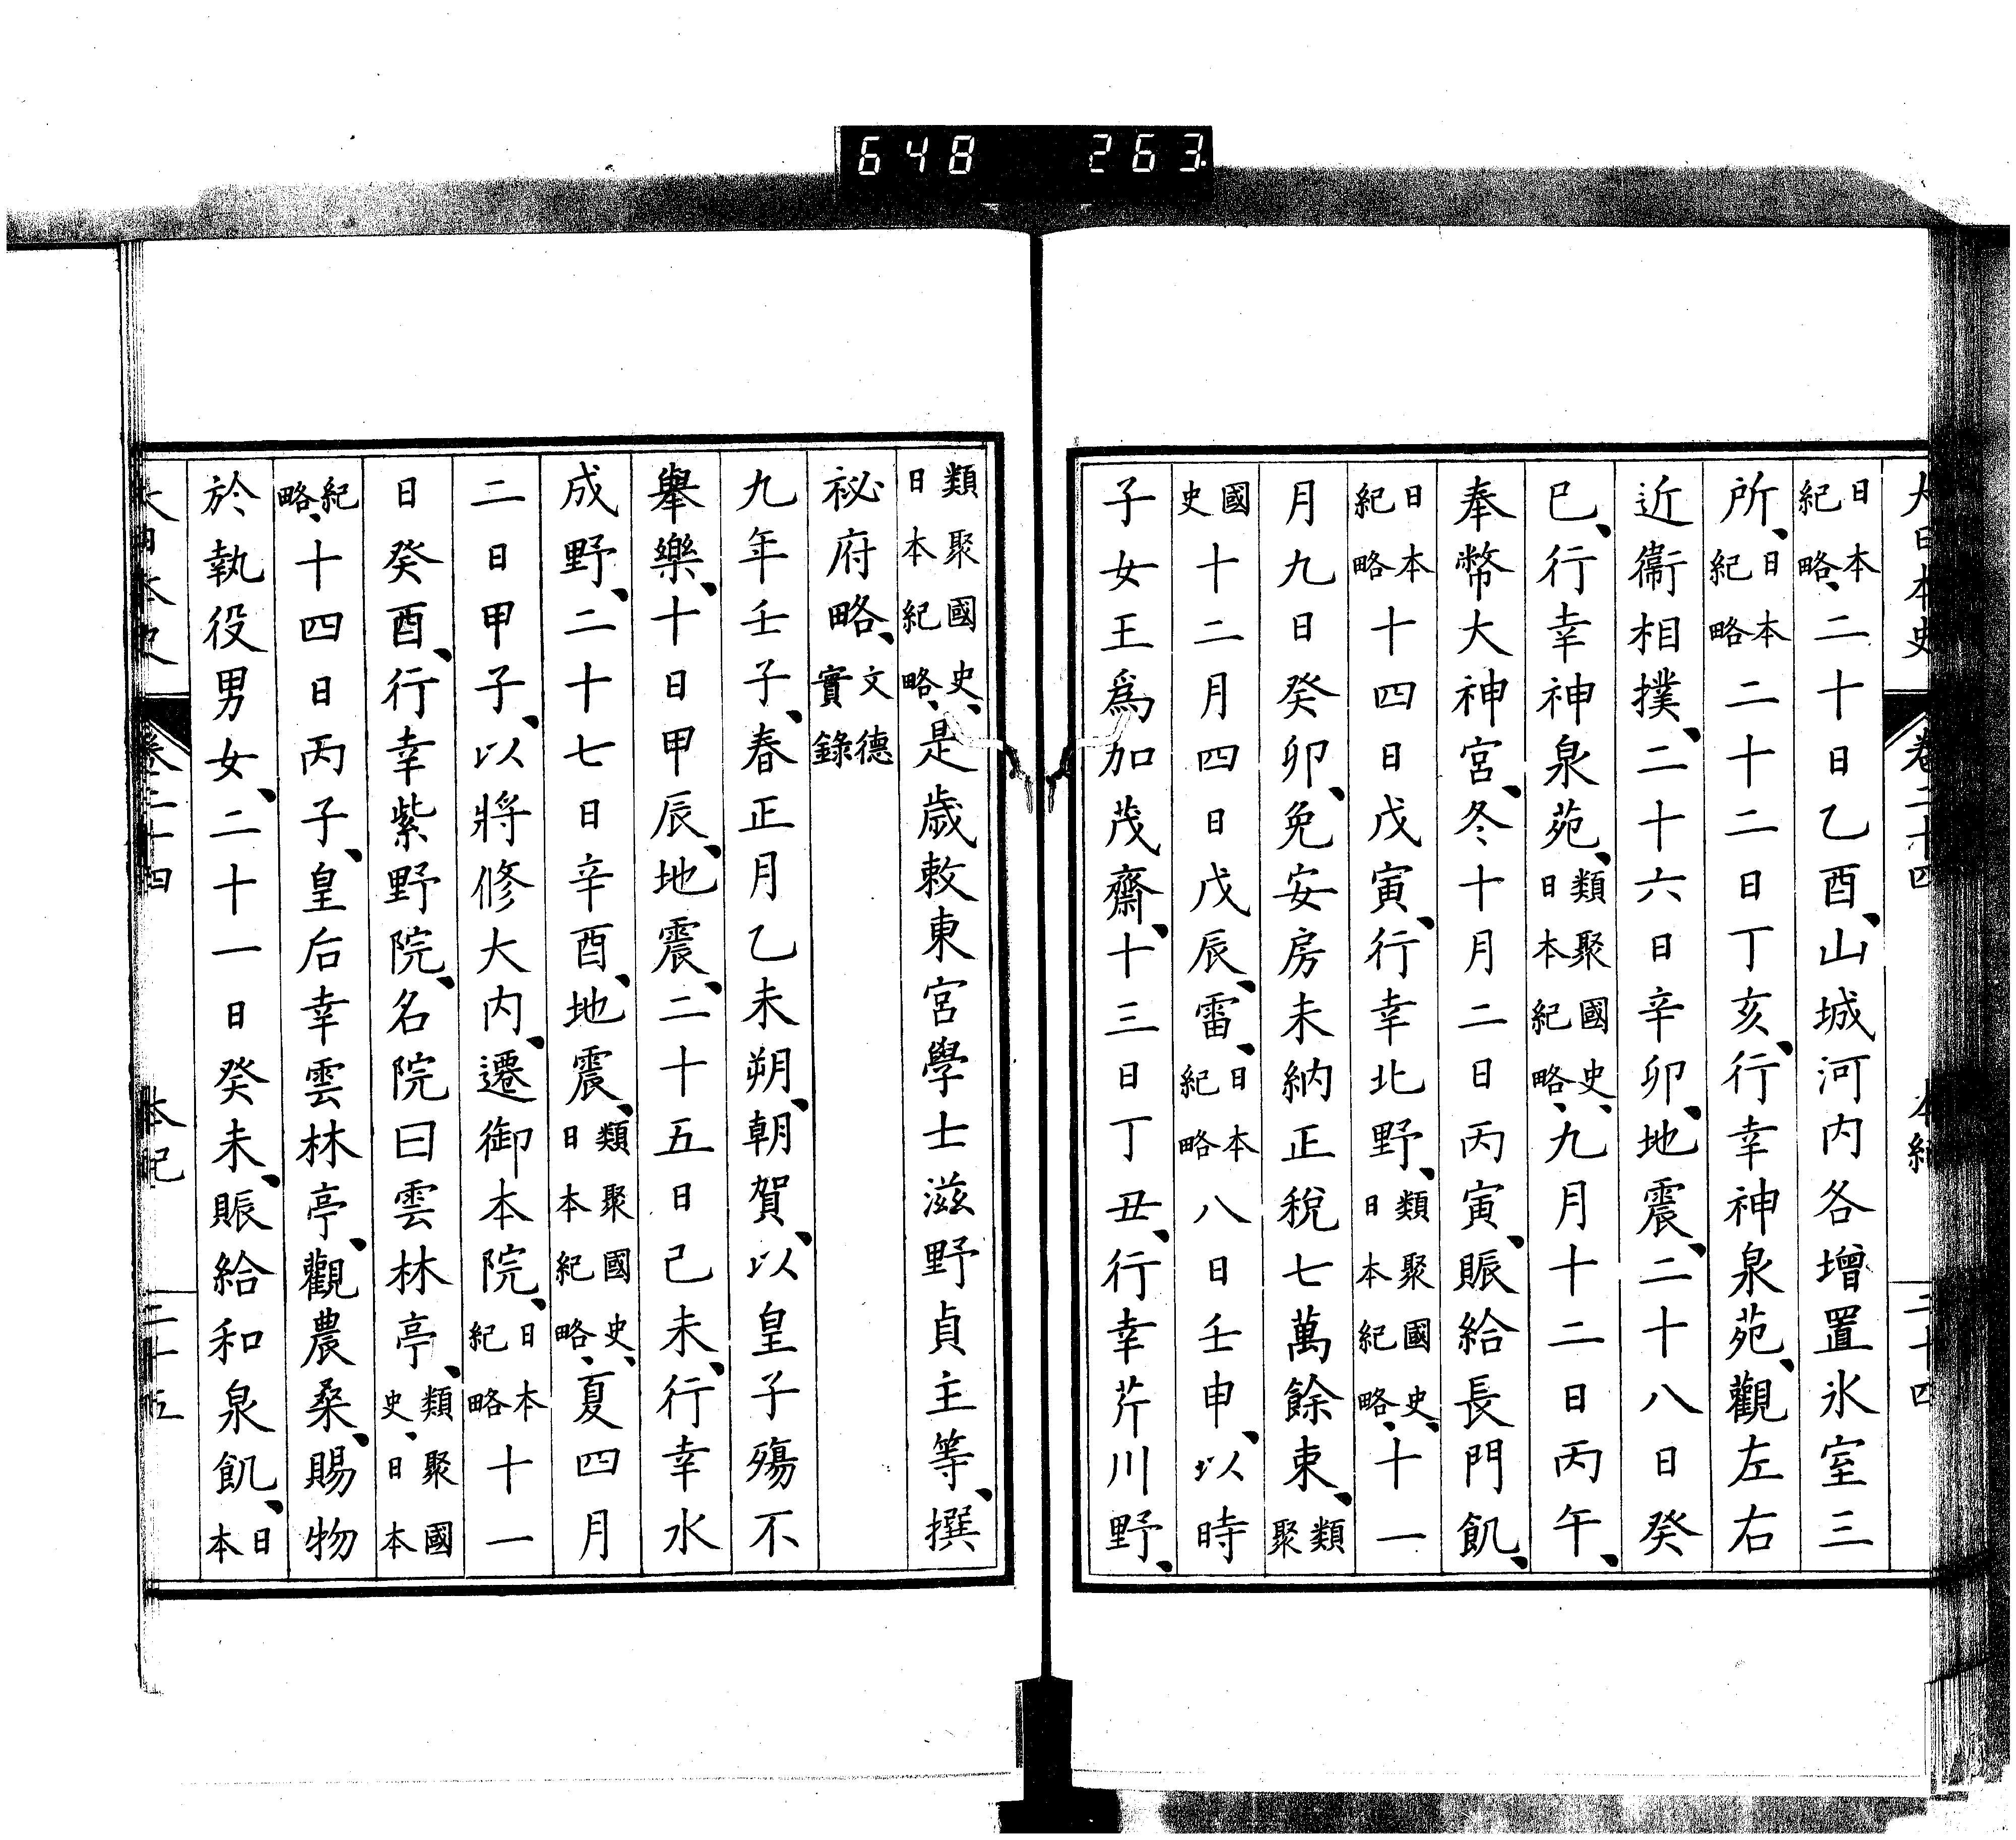 648 263
大日本史 卷二十四 本紀 二十四
日本紀略、二十日乙酉、山城河内各增置氷室三
所、日本紀略二十二日丁亥、行幸神泉苑、觀左右
近衞相撲、二十六日辛卯、地震、二十八日癸
巳、行幸神泉苑、類聚國史、日本紀略、九月十二日丙午、
奉幣大神宮、冬十月二日丙寅、賑給長門飢、
日本紀略十四日戊寅、行幸北野、類聚國史、日本紀略、十一
月九日癸卯、免安房未納正稅七萬餘束、類聚
國史十二月四日戊辰、雷、日本紀略八日壬申、以時
子女王爲加茂齋、十三日丁丑、行幸芹川野、
類聚國史、日本紀略、是歲敕東宮學士滋野貞主等、撰
祕府略、文德實錄
九年壬子、春正月乙未朔、朝賀、以皇子殤不
舉樂、十日甲辰、地震、二十五日己未、行幸水
成野、二十七日辛酉、地震、類聚國史、日本紀略、夏四月
二日甲子、以將修大内、遷御本院、日本紀略十一
日癸酉、行幸紫野院、名院曰雲林亭、類聚國史、日本
紀略、十四日丙子、皇后幸雲林亭、觀農桑、賜物
於執役男女、二十一日癸未、賑給和泉飢、日本
大日本史 卷二十四 本紀 二十五